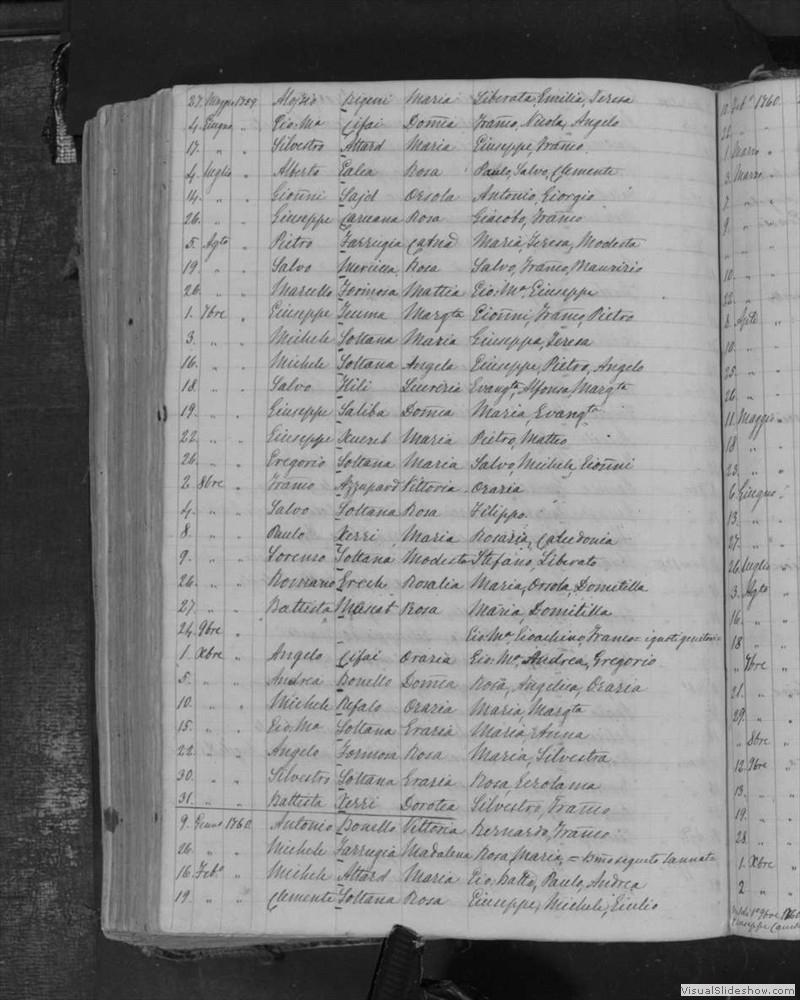 27. Maggio 1859. Aloisio Rigeni Maria Liberata, Emilia, Teresa
4. Giugno " Gio: Mª Cifai Domca Franco, Nicola, Angelo
17. " " Silvestro Attard Maria Giuseppe, Franco
4. Luglio " Alberto Galea Rosa Paulo, Salvo, Clemente
14. " " Gioñni Sajd Orsola Antonio, Giorgio
26. " " Giuseppe Caruana Rosa Giacobo, Franco
5. Agto " Pietro Farrugia Catnã Maria, Teresa, Modesta
19. " " Salvo Mercieca Rosa Salvo, Franco, Maurizio
26. " " Marcello Formosa Mattia Gio: Mª, Giuseppe
1. 7bre " Giuseppe Teuma Margta Gioñni, Franco, Pietro
3. " " Michele Soltana Maria Giuseppa, Teresa
16. " " Michele Soltana Angela Giuseppe, Pietro, Angelo
18. " " Salvo Hili Lucrezia Evangta, Alfonsa, Margta
19. " " Giuseppe Saliba Domca Maria, Evangta
22. " " Giuseppe Xuereb Maria Pietro, Matteo
26. " " Gregorio Soltana Maria Salvo, Michele, Gioñni
2. 8bre " Franco Azzupard Vittoria Grazia
4. " " Salvo Soltana Rosa Filippo
8. " " Paulo Xerri Maria Rosaria, Calcedonia
9. " " Lorenzo Soltana Modesta Stefano, Liberato
26. " " Romano Grech Rosalia Maria, Orsola, Domitilla
27. " " Battista Rosa Maria, Domitilla
24. 9bre " Gio: Mª, Gioachino, Franco = ignoti genitori =
1. Xbre " Angelo Cifai Grazia Gio: Mª, Andrea, Gregorio
5. " " Andrea Bonello Domca Rosa, Angelica, Grazia
10. " " Michele Refalo Grazia Maria, Margta
15. " " Gio: Mª Soltana Grazia Maria, Anna
22. " " Angelo Formosa Rosa Maria, Silvestra
30. " " Silvestro Soltana Grazia Rosa, Gerolama
31. " " Battista Xerri Dorotea Silvestro, Franco
9. Genno 1860. Antonio Bonello Vittoria Bernardo, Franco
26. " " Michele Farrugia Madalena Rosa, Maria, =
16. Febº " Michele Attard Maria Gio: Batta, Paulo, Andrea
19. " " Clemente Soltana Rosa Giuseppe, Michele, Giulio
Feb° 1860
22. "
1. Marzo "
3. Marzo "
7. "
9. "
" "
10. "
22. "
8. Aple "
10. "
25. "
26. "
11. Maggio "
18. "
23. "
6. Giugno "
13. "
27. "
26. Luglio "
3. Agto "
16. "
18. "
" 7bre "
21. "
29. "
" 8bre "
12. 9bre "
13. "
19. "
28. "
1. Xbre "
2. "
9bre 1860
Giuseppe
VisualSlideshow.com